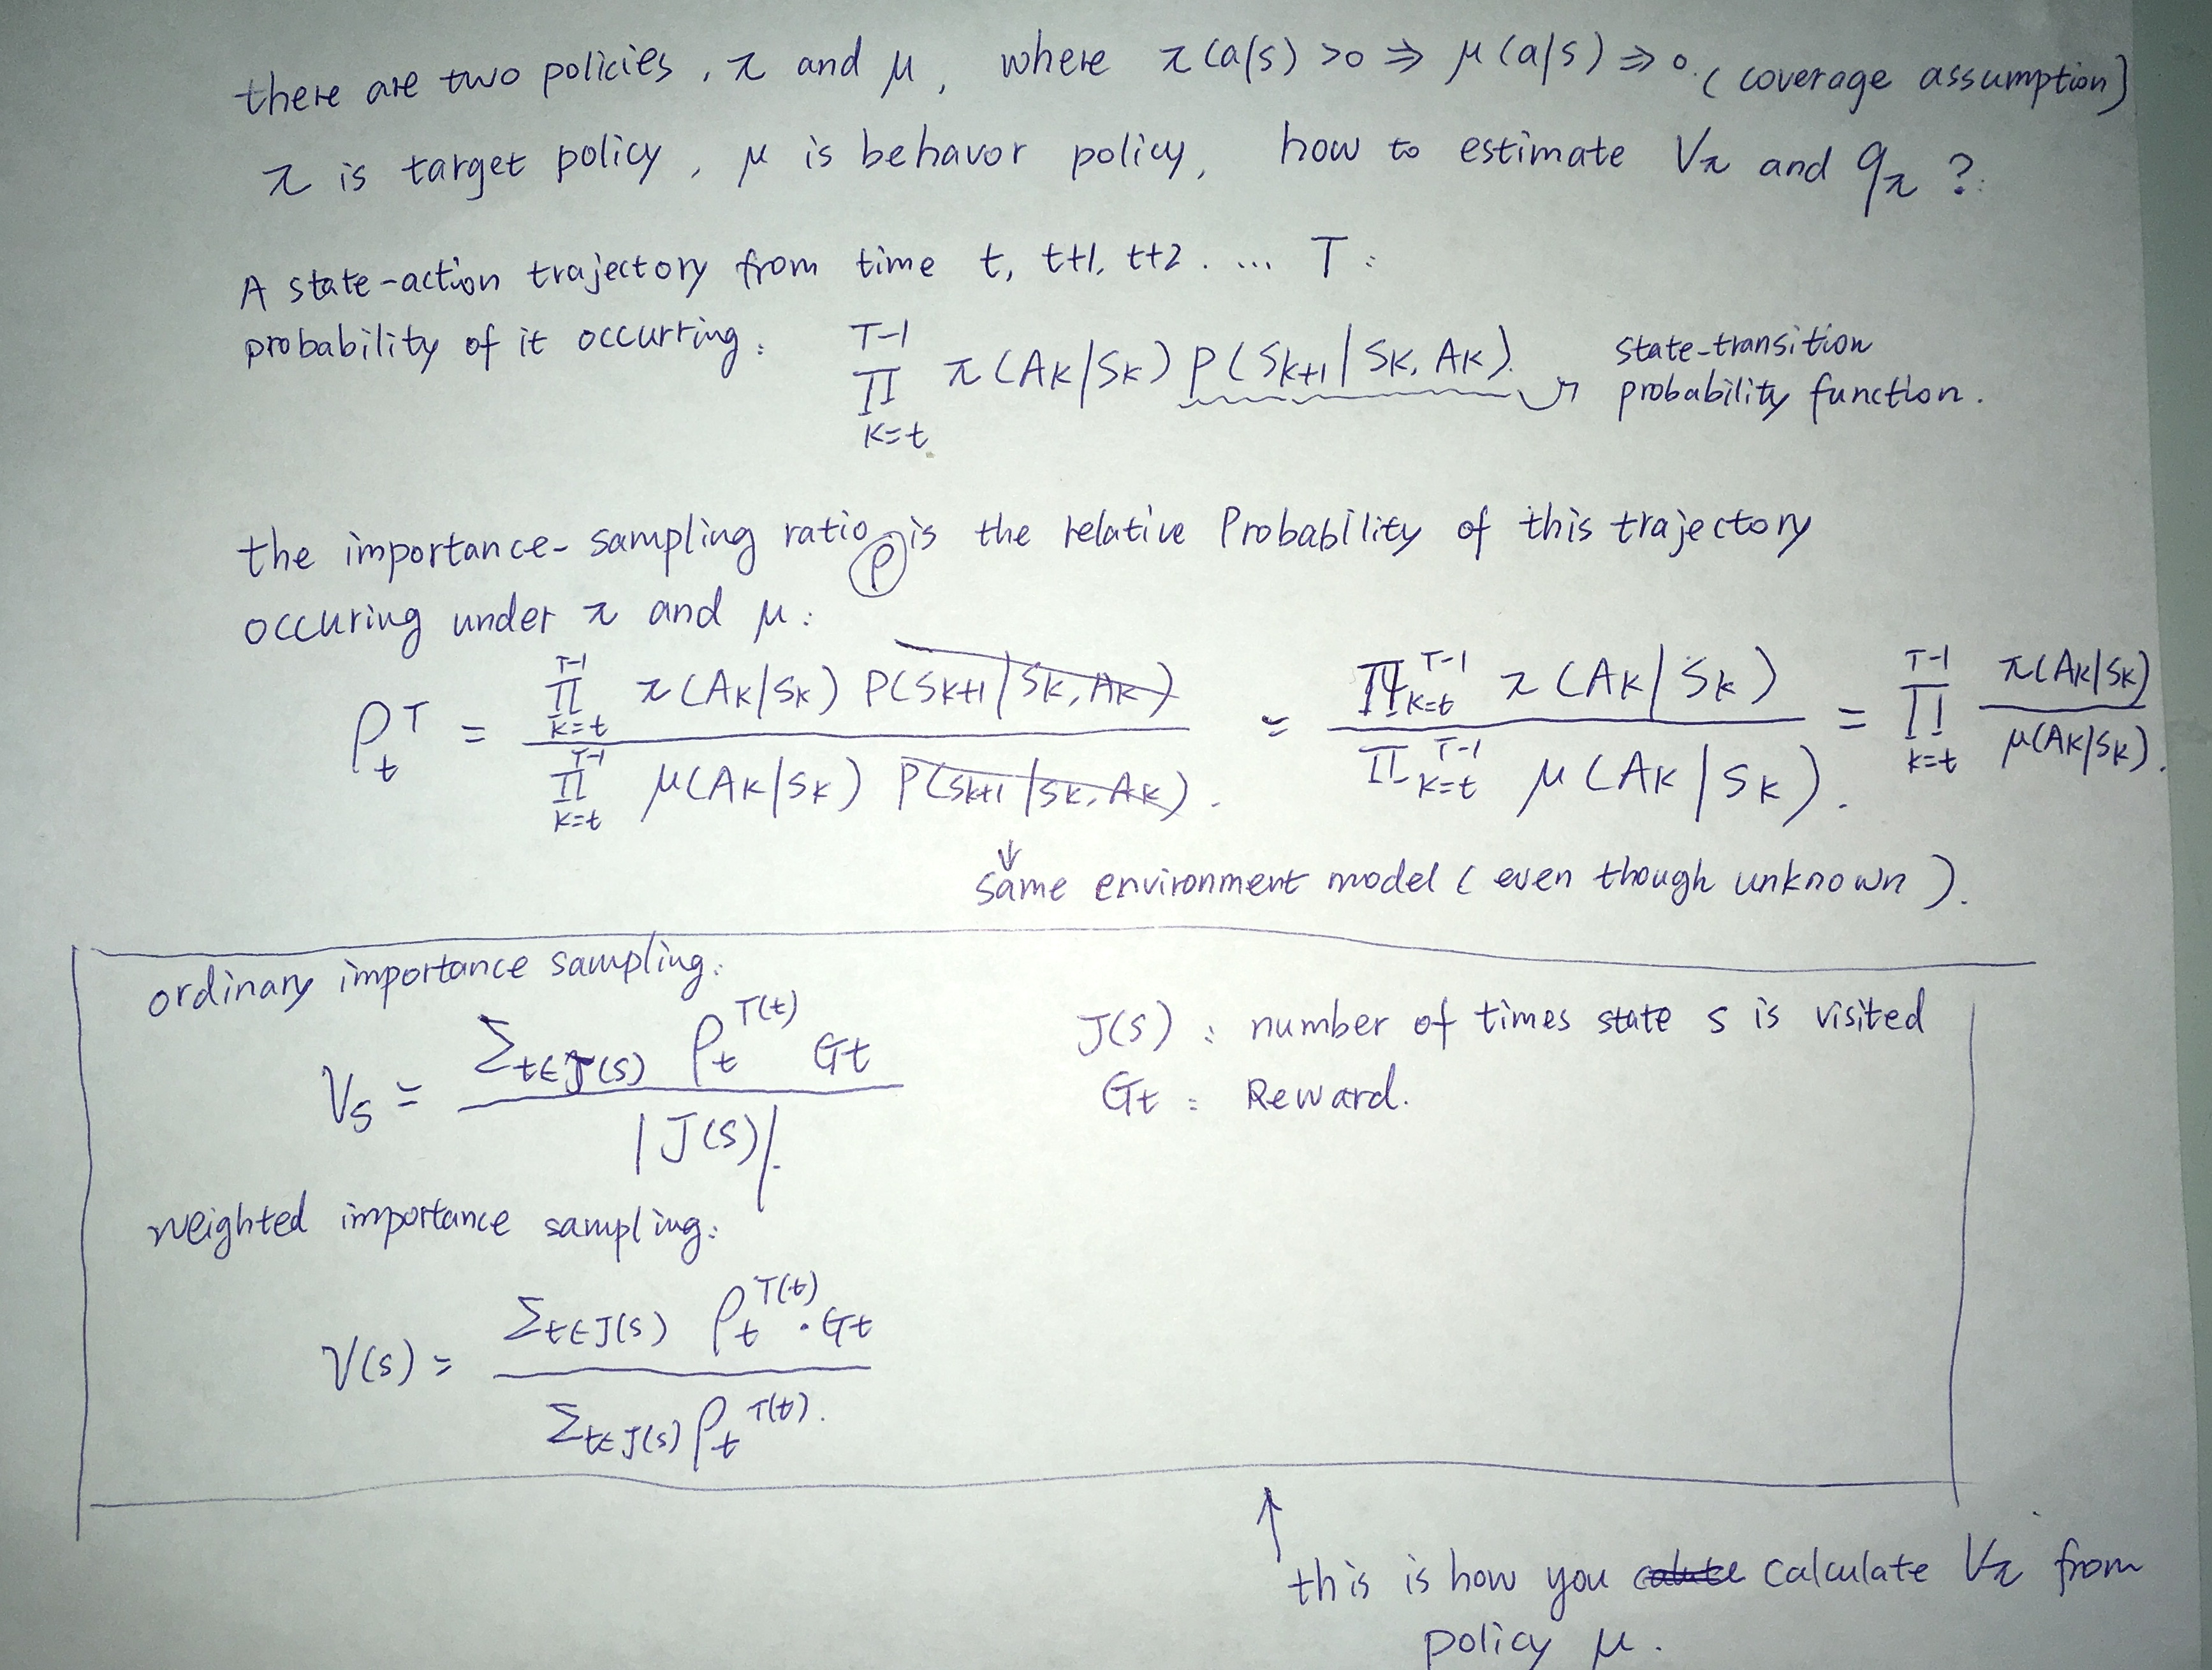 there are two policies, π and μ, where π(a|s) >0 ⇒ μ(a|s) ⇒ 0. (coverage assumption)
π is target policy, μ is behavor policy, how to estimate Vπ and qπ ?
A state-action trajectory from time t, t+1, t+2 . ... T :
probability of it occurring: ∏_{k=t}^{T-1} π(A_K|S_K) P(S_{k+1}|S_K, A_K). state-transition
probability function.
the importance-sampling ratio ρ is the relative Probability of this trajectory
occuring under π and μ:
ρ_t^T = ∏_{k=t}^{T-1} π(A_K|S_K) P(S_{k+1}|S_K, A_K) / ∏_{k=t}^{T-1} μ(A_K|S_K) P(S_{k+1}|S_K, A_K). = ∏_{k=t}^{T-1} π(A_K|S_K) / ∏_{k=t}^{T-1} μ(A_K|S_K). = ∏_{k=t}^{T-1} π(A_K|S_K) / μ(A_K|S_K).
↓
same environment model (even though unknown).
ordinary importance sampling:
V_S = Σ_{t∈J(S)} ρ_t^{T(t)} G_t / |J(S)|.
J(S) : number of times state s is visited
G_t : Reward.
weighted importance sampling:
V(s) = Σ_{t∈J(s)} ρ_t^{T(t)} · G_t / Σ_{t∈J(s)} ρ_t^{T(t)}.
↑
this is how you calculate Vπ from
policy μ.